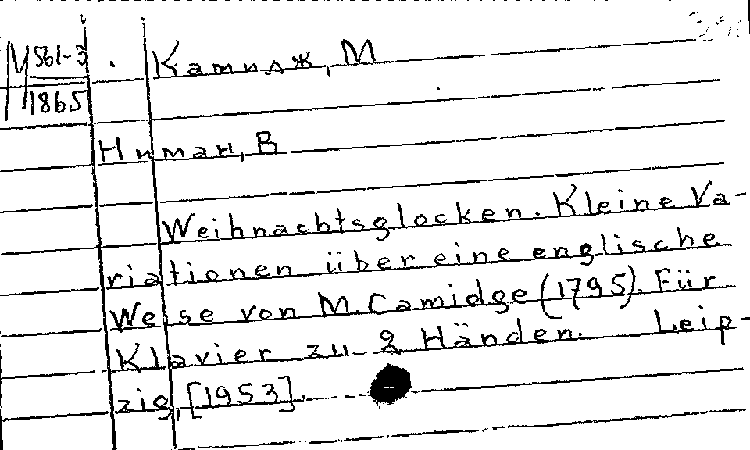 М 561-3
1865
Камидж, М
Ниман, В
Weihnachtsglocken. Kleine Va-
riationen über eine englische
Weise von M. Camidge (1795). Für
Klavier zu 2 Händen. Leip-
zig, [1953].